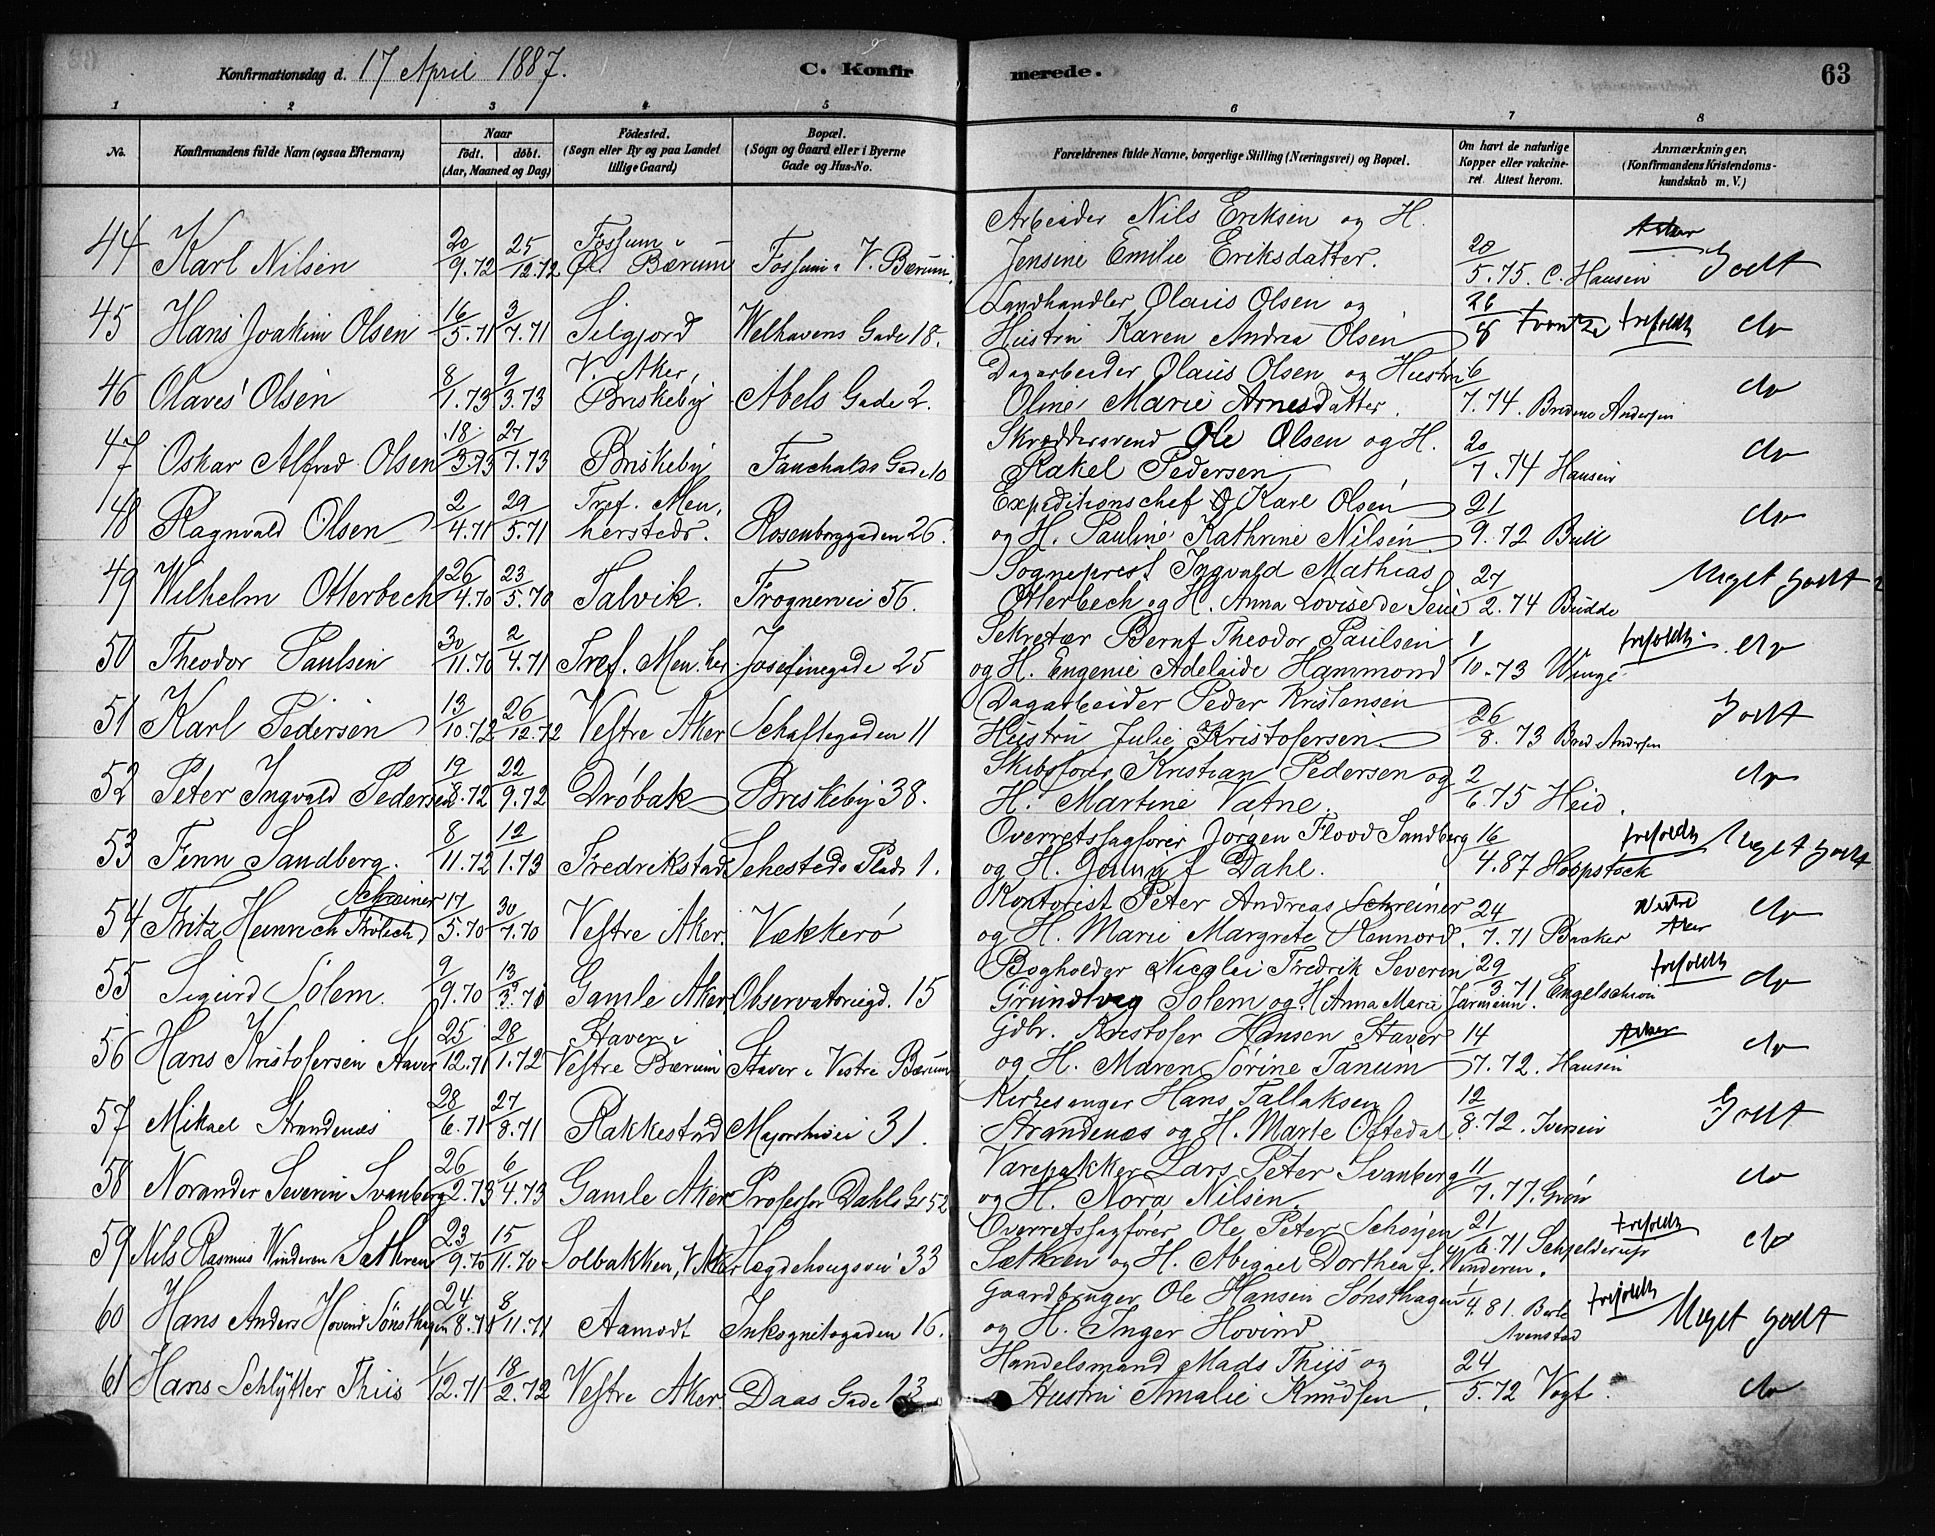 Konfirmationsdag d. 17 April 1887. C. Konfirmerede. 63
1 2 3 4 5 6 7 8
No. Konfirmandens fulde Navn (ogsaa Efternavn) Naar födt. döbt. (Aar, Maaned og Dag) Födested. (Sogn eller By og paa Landet tillige Gaard) Bopæl. (Sogn og Gaard eller i Byerne Gade og Hus-No. Forældrenes fulde Navne, borgerlige Stilling (Næringsvei) og Bopæl. Om havt de naturlige Kopper eller vakcineret. Attest herom. Anmærkninger. (Konfirmandens Kristendomskundskab m. V.)
44 Karl Nilsen 20/9.72 25/12.72 Fossum i Ø. Bærum Fossum i V. Bærum Arbeider Nils Eriksen og H. Jensine Emilie Eriksdatter. 20/5.75 C. Hansen Aker Godt
45 Hans Joakim Olsen 16/5.71 3/7.71 Silgjord Welhavens Gade 18. Landhandler Olaus Olsen og Hustru Karen Andrea Olsen 26/8 frafoldt do
46 Olaves Olsen 8/1.73 9/3.73 V. Aker, Briskeby Abels Gade 2. Dagarbeider Olaus Olsen og Hustru Oline Marie Arnesdatter. 6/7.74. Andersen do
47 Oskar Alfred Olsen 18/3.73 27/7.73 Briskeby Fauchalds Gade 10 Skræddersvend Ole Olsen og H. Rakel Pedersen 20/7.74 Hansen do
48 Ragnvald Olsen 2/4.71 29/5.71 Tref. Men. herstedr. Rosenborggaden 26. Expeditionschef Karl Olsen og H. Pauline Kathrine Nilsen 21/9.72 Bull do
49 Wilhelm Otterbech 26/4.70 23/5.70 Talvik. Frognervei 56. Sogneprest Ingvald Mathias Otterbech og H. Anna Lovise de Seue 27/2.74 Budde Meget godt
50 Theodor Paulsen 30/11.70 2/4.71 Tref. Men. her. Josefinegade 25 Sekretær Bernt Theodor Paulsen og H. Engenie Adelaide Hammond 1/10.73 Winge do
51 Karl Pedersen 13/10.72 26/12.72 Vestre Aker Schaftegaden 11 Dagarbeider Peder Kristensen Hustru Julie Kristofersen. 26/8.73 Andersen Godt
52 Peter Ingvald Pedersen 19/8.72 22/9.72 Dröbak Briskeby 38. Skibsförer Kristian Pedersen og H. Martine Vatne. 2/6.75 Heid. do
53 Finn Sandberg. 8/11.72 12/1.73 Fredrikstad Sehesteds Plads 1. Overretssagförer Jörgen Flood Sandberg og H. Jenny f Dahl. 16/4.87 Hoppstock Meget godt
54 Fritz Heinrich Frölich Schreiner 17/5.70 30/7.70 Vestre Aker. Vækkerö Kontorist Peter Andreas Schreiner og H. Marie Margrete Rennord. 24/7.71 Backer Vestre Aker do
55 Sigurd Solem. 9/9.70 13/3.70 Gamle Aker Observatoriegd. 15 Bogholder Nicolei Fredrik Severin Grundtvig Solem og H. Anna Marie 29/3.71 Engelschiøn do
56 Hans Kristofersen Staver 25/12.71 28/1.72 Staver i Vestre Bærum Staver i Vestre Bærum Gdbr. Kristofer Hansen Staver og H. Maren Sörine Tanum 14/7.72. Hansen Aker do
57 Mikael Strandenæs 28/6.71 27/8.71 Rakkestad Majorstuvei 31. Kirkesanger Hans Tallaksen Strandenæs og H. Marte Oftedal. 12/8.72. Iversen Godt
58 Norander Severin Svanberg 26/2.73 6/4.73 Gamle Aker Professor Dahls G. 52 Varepakker Lars Peter Svanberg og H. Nora Nilsen. 11/7.77. Grøn do
59 Nils Rasmus Winderen Sætkren 23/9.70 15/11.70 Solbakken, V. Aker Hægdehougsvei 33 Overretssagförer Ole Peter Schøyen Sætkren og H. Abigael Dorthea f. Winderen. 21/6.71 Schjelderup do
60 Hans Anders Hovind Sönsthagen 24/8.71 8/11.71 Aamodt Inkognitogaden 16. Gaardbruger Ole Hansen Sönsthagen og H. Inger Hovind 1/4.81. Meget godt
61 Hans Schlytter Thiis 1/12.71 18/2.72 Vestre Aker Daas Gade 13 Handelsmand Mads Thiis og Hustru Amalie Knudsen. 24/5.72 Vogt. do